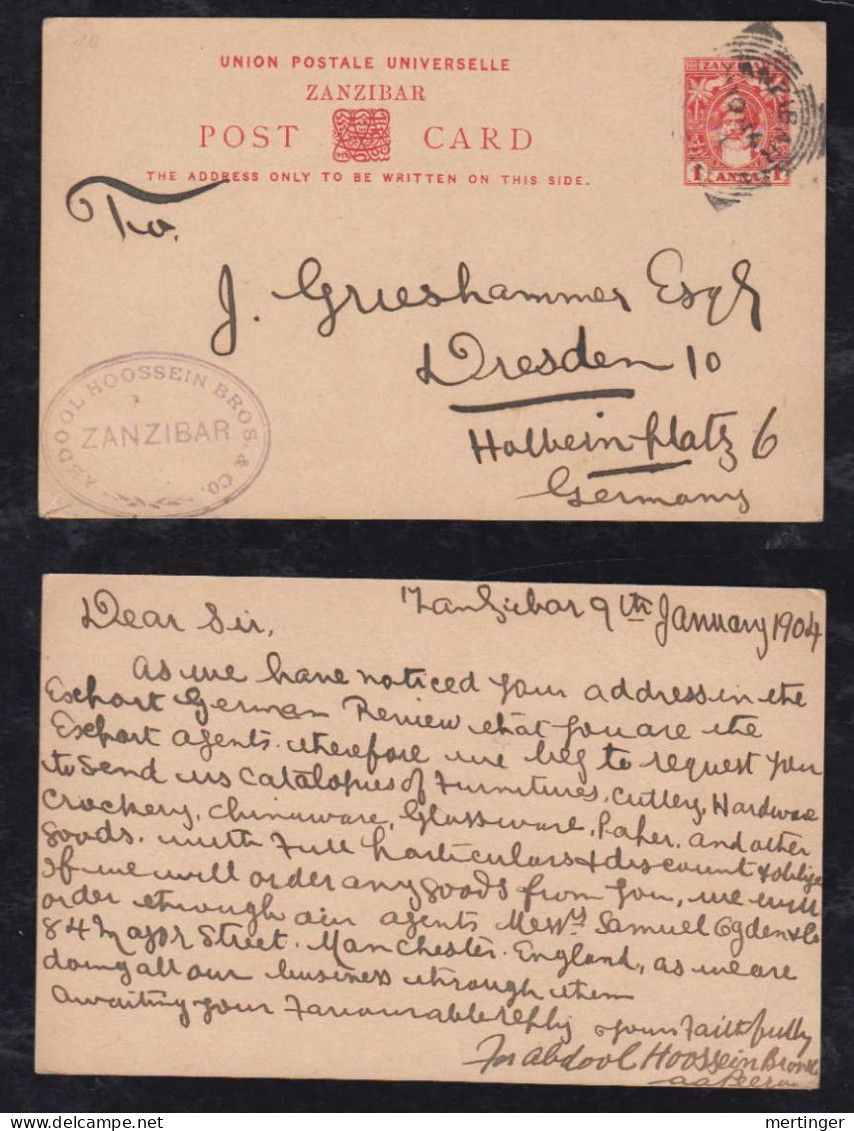 UNION POSTALE UNIVERSELLE
ZANZIBAR
POST CARD
THE ADDRESS ONLY TO BE WRITTEN ON THIS SIDE.
ZANZIBAR
1 ANNA 1
ZANZIBAR
To.
J. Grieshammer Esqr
Dresden 10
Holbein-platz 6
Germany
ABDOOL HOOSSEIN BROS. & CO.
ZANZIBAR
Zanzibar 9th January 1904
Dear Sir,
As we have noticed your address in the
Export German Review that you are the
Export agents. therefore we beg to request you
to send us catalogues of Furnitures, cutlery, Hardware
Crockery, chinaware, Glassware, Paper. and other
goods. with Full particulars & discount & oblige
If we will order any goods from you, we will
order through our agents Messrs Samuel Ogden & Co
84 Major Street. Manchester. England, as we are
doing all our business through them
Awaiting your Favourable reply yours Faithfully
For Abdool Hoossein Bros & Co
mertinger